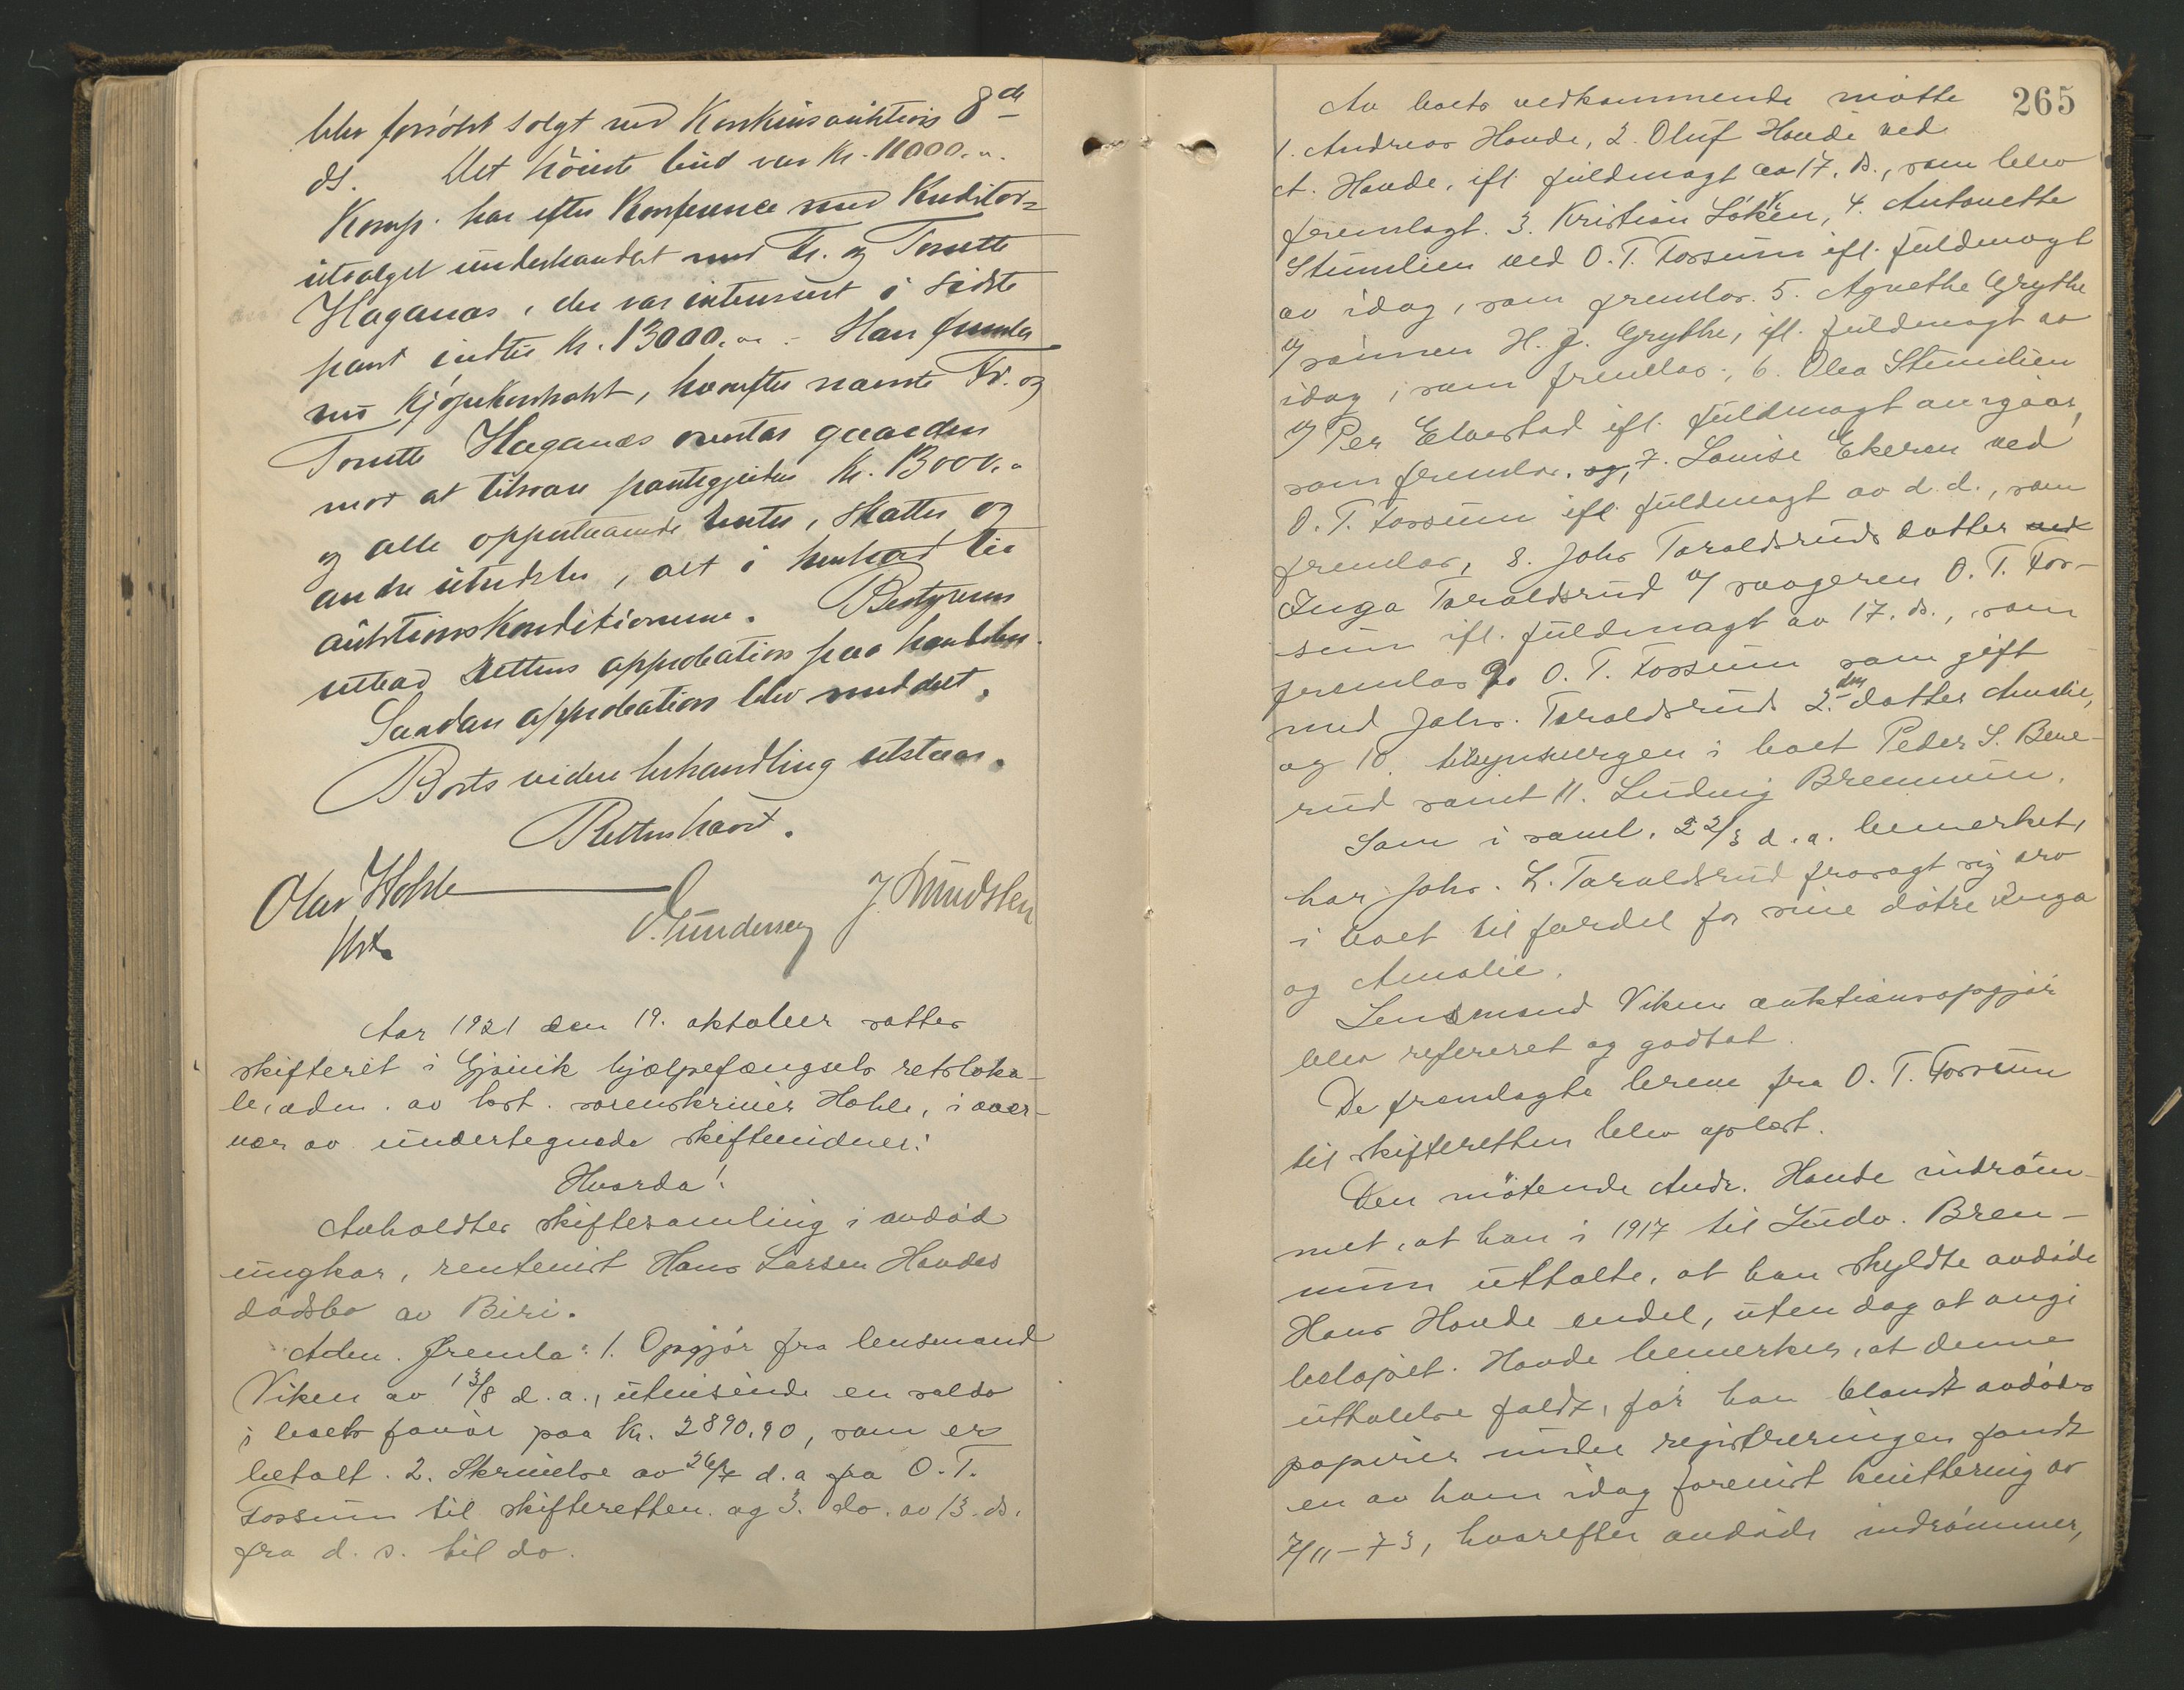 blev forsøkt solgt ved Konkursauktion 8de
ds. Det höieste bud var Kr. 11000.-.
Komp. har efter Konference med Kreditor=
utvalget underhandlet med Fr. og Tomette
Haganæs, der var interessert i sidste
pant indtil Kr. 13000.-. Han fremla
nu Kjöpekontrakt, hvorefter nævnte Fr. og
Tomette Haganæs overtar gaarden
mot at tilsvare pantegjelden Kr. 13000.-
og alle opperterende renter, skatter og
andre utredsler, alt i henhold til
auktionskonditionerne. Bestyreren
utbad Rettens approbation paa handelen.
Saadan approbation blev meddelt.
Boets videre behandling utstaar.
Retten hævet.
Olav Hohle
kst.
O. Gundersen J. Sundsten
Aar 1921 den 19. oktober sattes
skifteret i Gjøvik hjælpefængsels retsloka-
le, adm. av kost. sorenskriver Hohle, i over-
vær av undertegnede skiftevidner:
Hvorda!
Avholdtes skiftesamling i avdød
ungkar, rentenist Hans Larsen Hovdes
dødsbo av Biri.
Adm. fremla: 1. Opgjør fra lensmand
Viken av 13/8 d. a., utvisende en saldo
i boets favør paa kr. 2890.90, som er
betalt. 2. Skrivelse av 26/7 d. a fra O. T.
Fossum til skifteretten. og 3. do. av 13. ds.
fra d. s. til do.
265
Av boets vedkommende møtte
1. Andreas Hovde, 2. Oluf Hovde ved
A. Hovde, ifl. fuldmagt av 17. ds., som blev
fremlagt. 3. Kristian Løken, 4. Antonette
Stumlien ved O. T. Fossum ifl. fuldmagt
av idag, som fremlas. 5. Agnethe Grythe
v/ sønnen H. J. Grythe, ifl. fuldmagt av
idag, som fremlas., 6. Olea Stumlien
v/ Per Elvestad ifl. fuldmagt av igaar,
som fremlas. og, 7. Louise Ekeren ved
O. T. Fossum ifl. fuldmagt av d. d., som
fremlas, 8. Johs Taraldsruds datter ved
Inga Taraldsrud v/ svogeren O. T. Fos-
sum ifl. fuldmagt av 17. ds., som
fremlas 9. O. T. Fossum som gift
med Johs. Taraldsruds 2.den datter Amalie,
og 10. tilsynsvergen i boet Peder S. Bene-
rud samt 11. Ludvig Bremmum.
Som i saml. 22/3 d. a. bemerket,
har Johs. L. Taraldsrud frasagt sig arv
i boet til fordel for sine døtre Inga
og Amalie.
Lensmand Vikens auktionsopgjør
blev refereret og godtat.
De fremlagte breve fra O. T. Fossum
til skifteretten blev oplæst.
Den møtende Andr. Hovde indrøm-
met, at han i 1917 til Ludv. Brem-
mum uttalte, at han skyldte avdøde
Hans Hovde endel, uten dog at angi
beløpet. Hovde bemerker, at denne
uttalelse faldt, før han blandt avdødes
papirer under registreringen fandt
en av ham idag forevist kvittering av
7/11-73, hvorefter avdøde indrømmer,